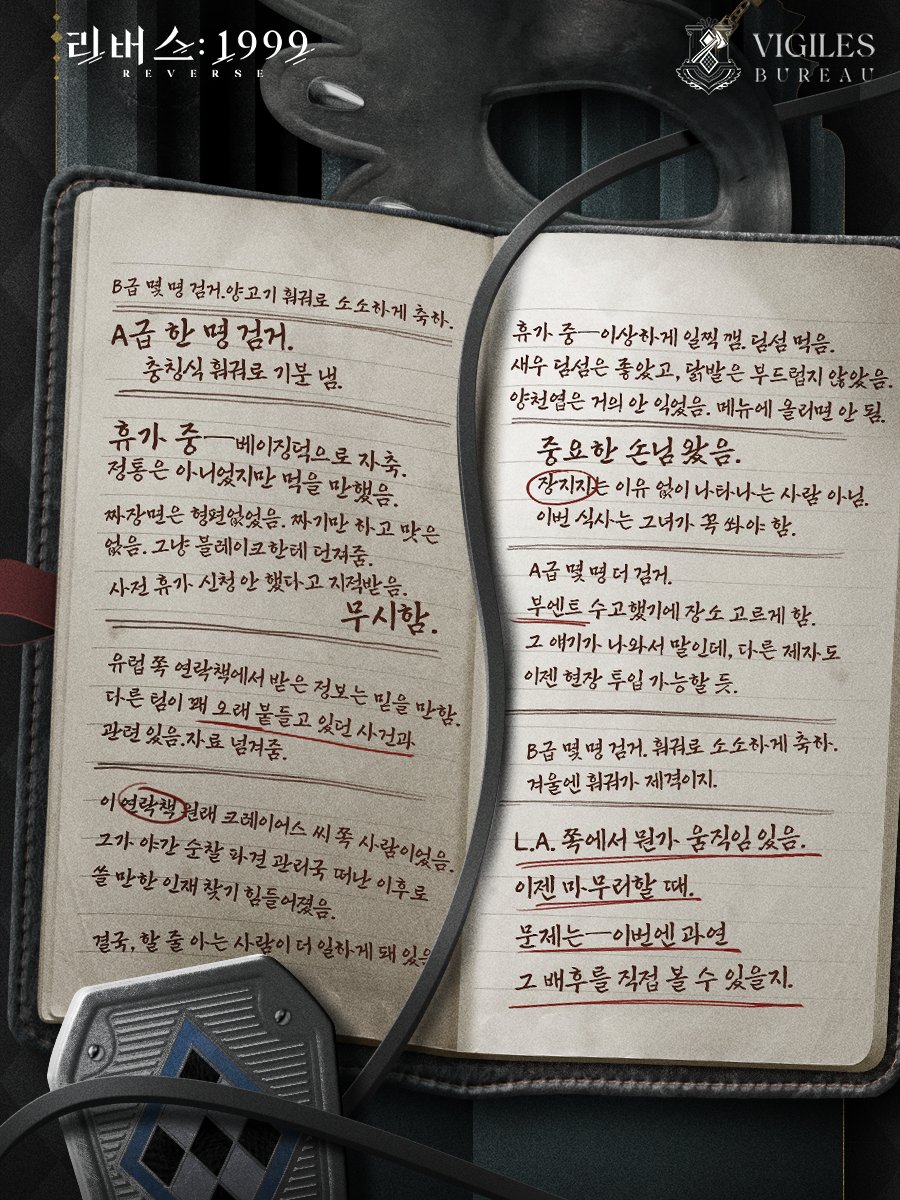 리버스:1999
REVERSE
VIGILES
BUREAU
B급 몇 명 검거.양고기 훠궈로 소소하게 축하.
A급 한 명 검거.
충칭식 훠궈로 기분 냄.
휴가 중—베이징덕으로 자축.
정통은 아니었지만 먹을 만했음.
짜장면은 형편없었음. 짜기만 하고 맛은
없음. 그냥 블레이크한테 던져줌.
사전 휴가 신청 안 했다고 지적받음.
무시함.
유럽 쪽 연락책에서 받은 정보는 믿을 만함.
다른 팀이 꽤 오래 붙들고 있던 사건과
관련 있음.자료 넘겨줌.
이 연락책 원래 크레이어스 씨 쪽 사람이었음.
그가 야간 순찰 파견 관리국 떠난 이후로
쓸 만한 인재 찾기 힘들어졌음.
결국, 할 줄 아는 사람이 더 일하게 돼 있음
휴가 중—이상하게 일찍 깸. 딤섬 먹음.
새우 딤섬은 좋았고, 닭발은 부드럽지 않았음.
양천엽은 거의 안 익었음. 메뉴에 올리면 안 됨.
중요한 손님 왔음.
장지지는 이유 없이 나타나는 사람 아님.
이번 식사는 그녀가 꼭 쏴야 함.
A급 몇 명 더 검거.
부엔트 수고했기에 장소 고르게 함.
그 얘기가 나와서 말인데, 다른 제자도
이젠 현장 투입 가능할 듯.
B급 몇 명 검거. 훠궈로 소소하게 축하.
겨울엔 훠궈가 제격이지.
L.A. 쪽에서 뭔가 움직임 있음.
이젠 마무리할 때.
문제는—이번엔 과연
그 배후를 직접 볼 수 있을지.